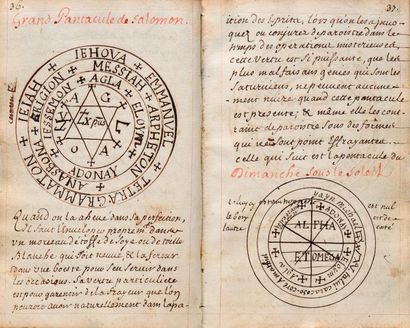 36.
Grand Pantacule de Salomon.
IEHOVA
EMMANUEL
TETRAGRAMMATON
IEIAH
MESSIAH
ELOYM
ADONAY
RELIGION
AGLA
A G
L A
Quand on l'a achevé dans sa perfection,
il faut l'envelopper proprement dans
un morceau d'étoffe de Soye ou de toille
Blanche qui soit neuve, & la fermer
dans une boeste pour s'en servir dans
les occasions. Sa vertu particuliere
est pour garentir de la frayeur que l'on
pouroit avoir naturellement dans l'apa-
37.
ition des Esprits, lors qu'on les apvoq-
uer ou conjurer de paroistre dans le
temps des operations misterieuses,
cette vertu est si puissante, que les
plus malfaisans genies qui sont les
Saturniens, ne peuvent aucune-
ment nuire quand cette pantacule
est presente; & même elle les con-
traint de paroistre sous des formes
qui ne sont point Effrayantes.
celle qui suit est la pantacule du
Dimanche Sous le Soleil
ADONAY
ALPHA
ET OMEGA